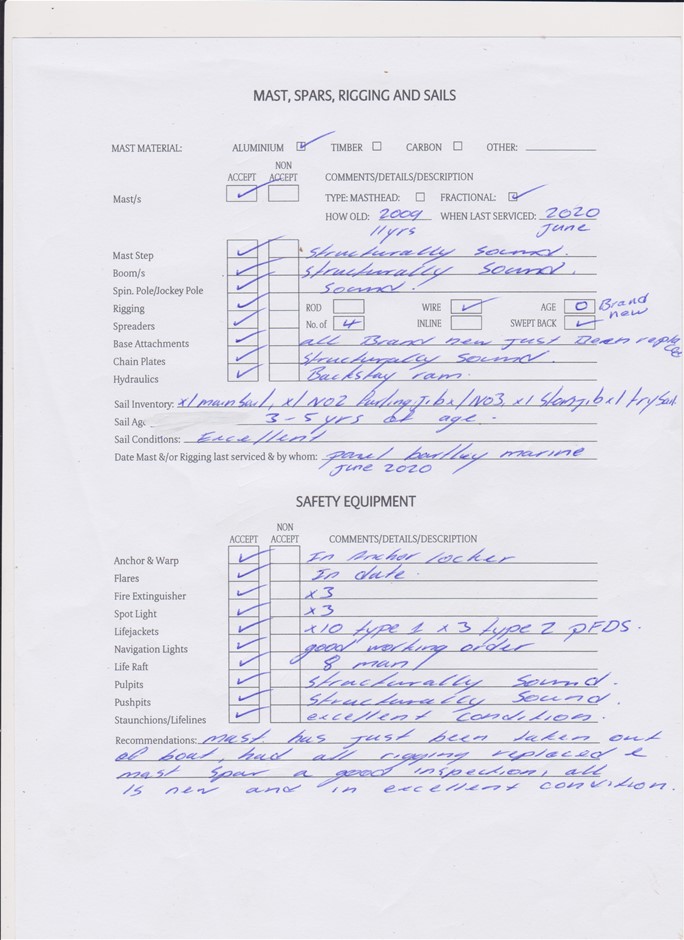 MAST, SPARS, RIGGING AND SAILS
MAST MATERIAL: ALUMINIUM TIMBER CARBON OTHER:
ACCEPT NON ACCEPT COMMENTS/DETAILS/DESCRIPTION
Mast/s TYPE: MASTHEAD: FRACTIONAL:
HOW OLD: 2009 WHEN LAST SERVICED: 2020
11yrs June
Mast Step structurally sound.
Boom/s structurally sound.
Spin. Pole/Jockey Pole sound.
Rigging ROD WIRE AGE 0 Brand new
Spreaders No. of 4 INLINE SWEPT BACK
Base Attachments all Brand new just Been
Chain Plates structurally sound.
Hydraulics Backstay ram.
Sail Inventory: x1 mainSail, x1 NO2 furling Jib x1 NO3, x1 x1 trysail
Sail Age 3-5 yrs of age.
Sail Conditions: Excellent
Date Mast &/or Rigging last serviced & by whom: marine
June 2020
SAFETY EQUIPMENT
ACCEPT NON ACCEPT COMMENTS/DETAILS/DESCRIPTION
Anchor & Warp In Anchor locker
Flares In date.
Fire Extinguisher x3
Spot Light x3
Lifejackets x10 type 1 x3 type 2 PFDS.
Navigation Lights good working order
Life Raft 8 man
Pulpits structurally sound.
Pushpits structurally sound.
Staunchions/Lifelines excellent condition.
Recommendations: mast has just been taken out
of boat, had all rigging replaced &
mast spar a good inspection, all
is new and in excellent condition.